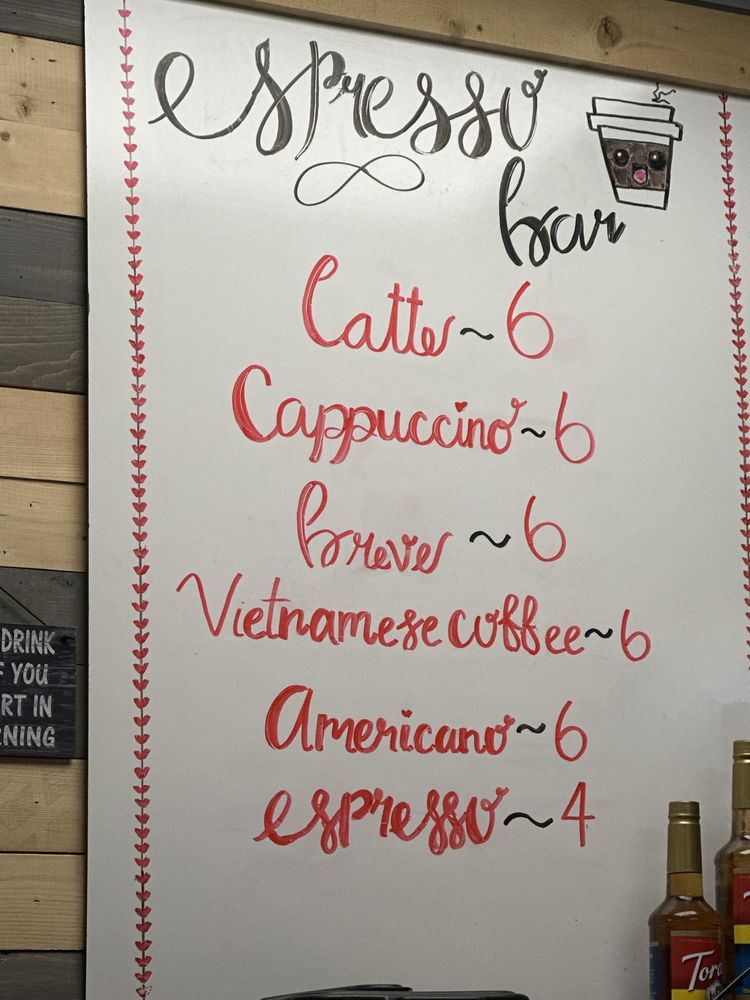 espresso
bar
Latte ~ 6
Cappuccino ~ 6
breve ~ 6
Vietnamese coffee ~ 6
Americano ~ 6
espresso ~ 4
DRINK
YOU
RT IN
NING
Tor